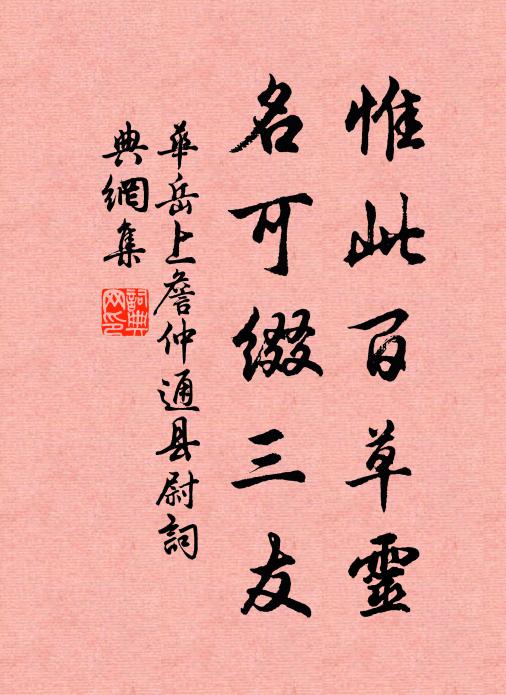 惟此百草靈
名可缀三友
華岳上詹仲通县尉詞
典網集
詞典網印